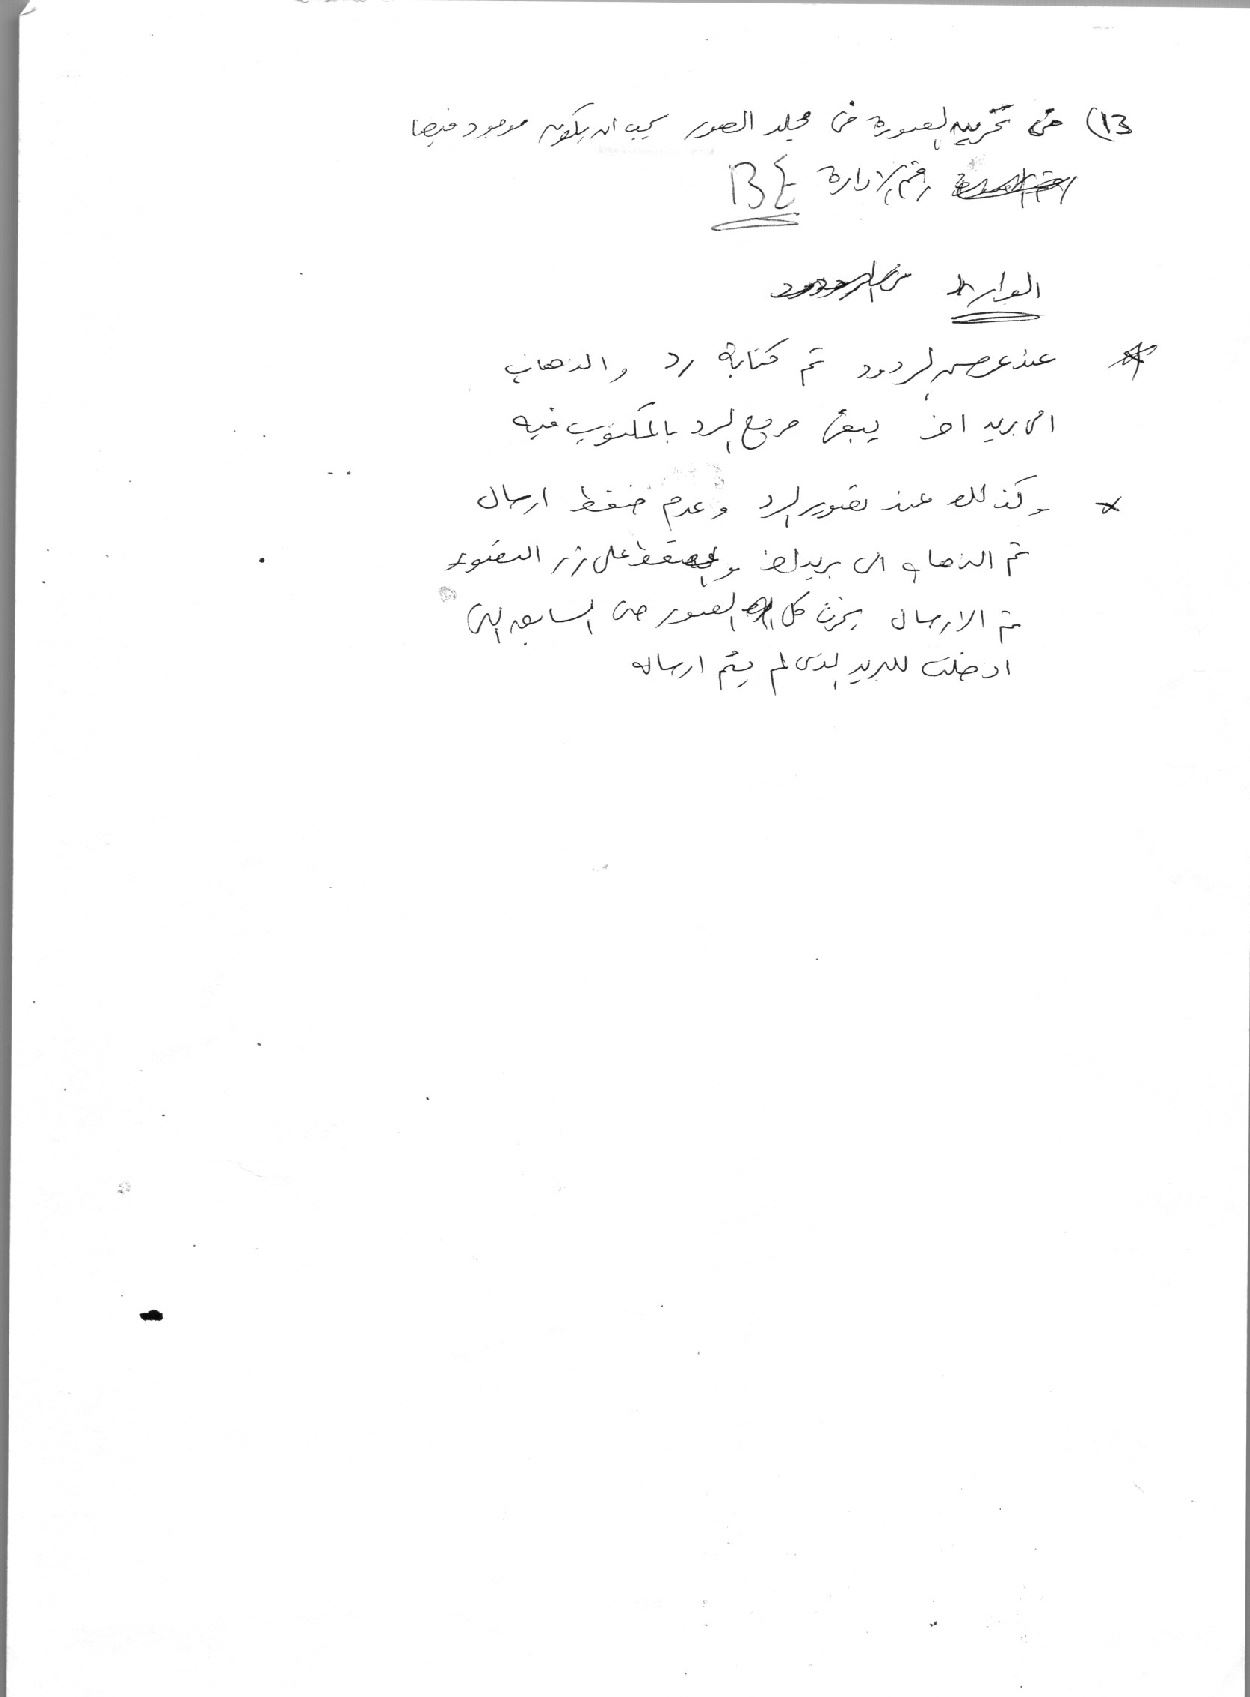 13) في تخزين الصورة في مجلد الصور يجب ان يكون موجود فيها
رقم الادارة BE
الوارد
* عند عرض الردود تم كتابة رد والذهاب
الى بريد اخر يبقى مربع الرد بالمكتوب فيه
* وكذلك عند تصوير الرد وعدم ضغط ارسال
ثم الذهاب الى بريد اخر والضغط على زر التصوير
ثم الارسال يخزن كل الصور حتى السابقة التي
ادخلت للبريد الذي لم يتم ارساله